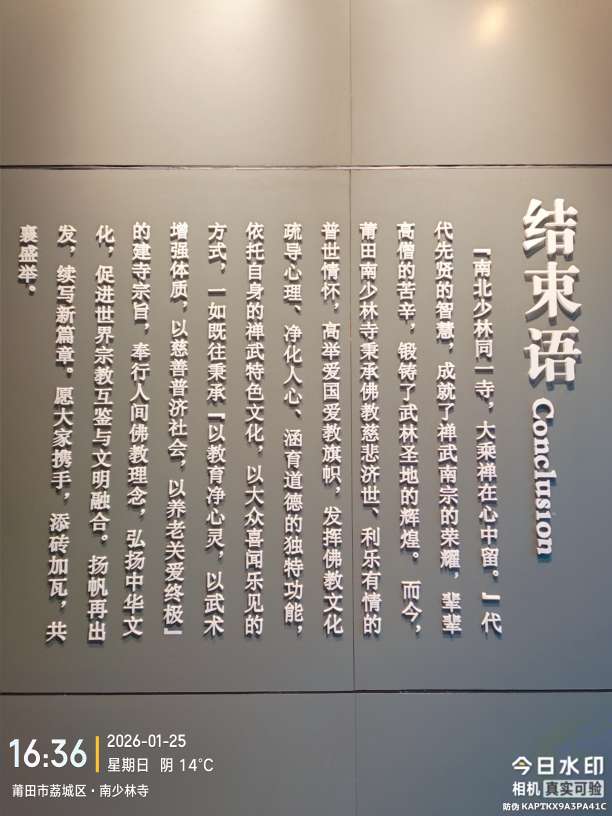 结束语 Conclusion
「南北少林同一寺，大乘禅在心中留。」代
代先贤的智慧，成就了禅武南宗的荣耀，辈辈
高僧的苦辛，锻铸了武林圣地的辉煌。而今，
莆田南少林寺秉承佛教慈悲济世、利乐有情的
普世情怀，高举爱国爱教旗帜，发挥佛教文化
疏导心理、净化人心、涵育道德的独特功能，
依托自身的禅武特色文化，以大众喜闻乐见的
方式，一如既往秉承「以教育净心灵，以武术
增强体质，以慈善普济社会，以养老关爱终极」
的建寺宗旨，奉行人间佛教理念，弘扬中华文
化，促进世界宗教互鉴与文明融合。扬帆再出
发，续写新篇章。愿大家携手，添砖加瓦，共
襄盛举。
16:36
2026-01-25
星期日 阴 14℃
莆田市荔城区·南少林寺
今日水印
相机 真实可验
防伪 KAPTKX9A3PA41C